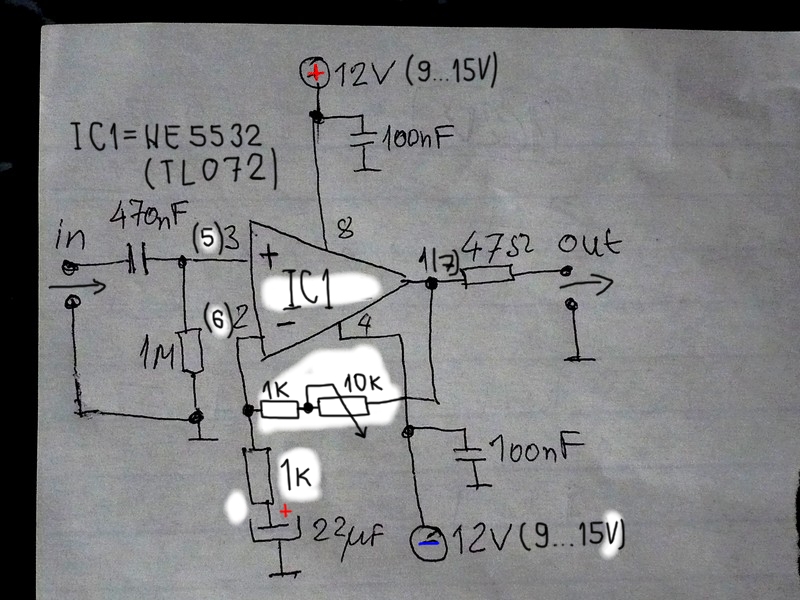 + 12V (9...15V)
100nF
IC1=NE5532
(TL072)
470nF
in
(5)3
8
+
IC1
1(7)
47Ω
out
(6)2
-
4
1M
1K
10K
1K
100nF
+
22µF
- 12V (9...15V)